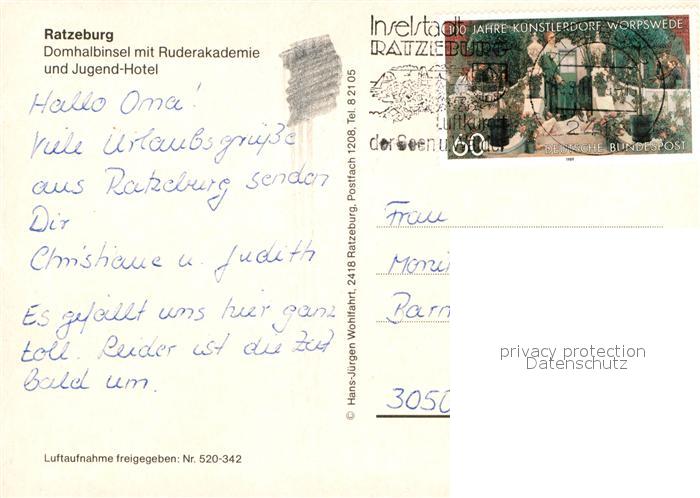 Ratzeburg
Domhalbinsel mit Ruderakademie
und Jugend-Hotel
Hallo Oma!
Viele Urlaubsgrüße
aus Ratzeburg senden
Dir
Christiane u. Judith
Es gefällt uns hier ganz
toll. Leider ist die Zeit
bald um.
Luftaufnahme freigegeben: Nr. 520-342
© Hans-Jürgen Wohlfahrt, 2418 Ratzeburg, Postfach 1208, Tel. 8 21 05
Inselstadt
RATZEBURG
Luftkurort
der Seen u.
100 JAHRE KÜNSTLERDORF WORPSWEDE
60
DEUTSCHE BUNDESPOST
1989
Frau
Moni
Barn
3050
privacy protection
Datenschutz